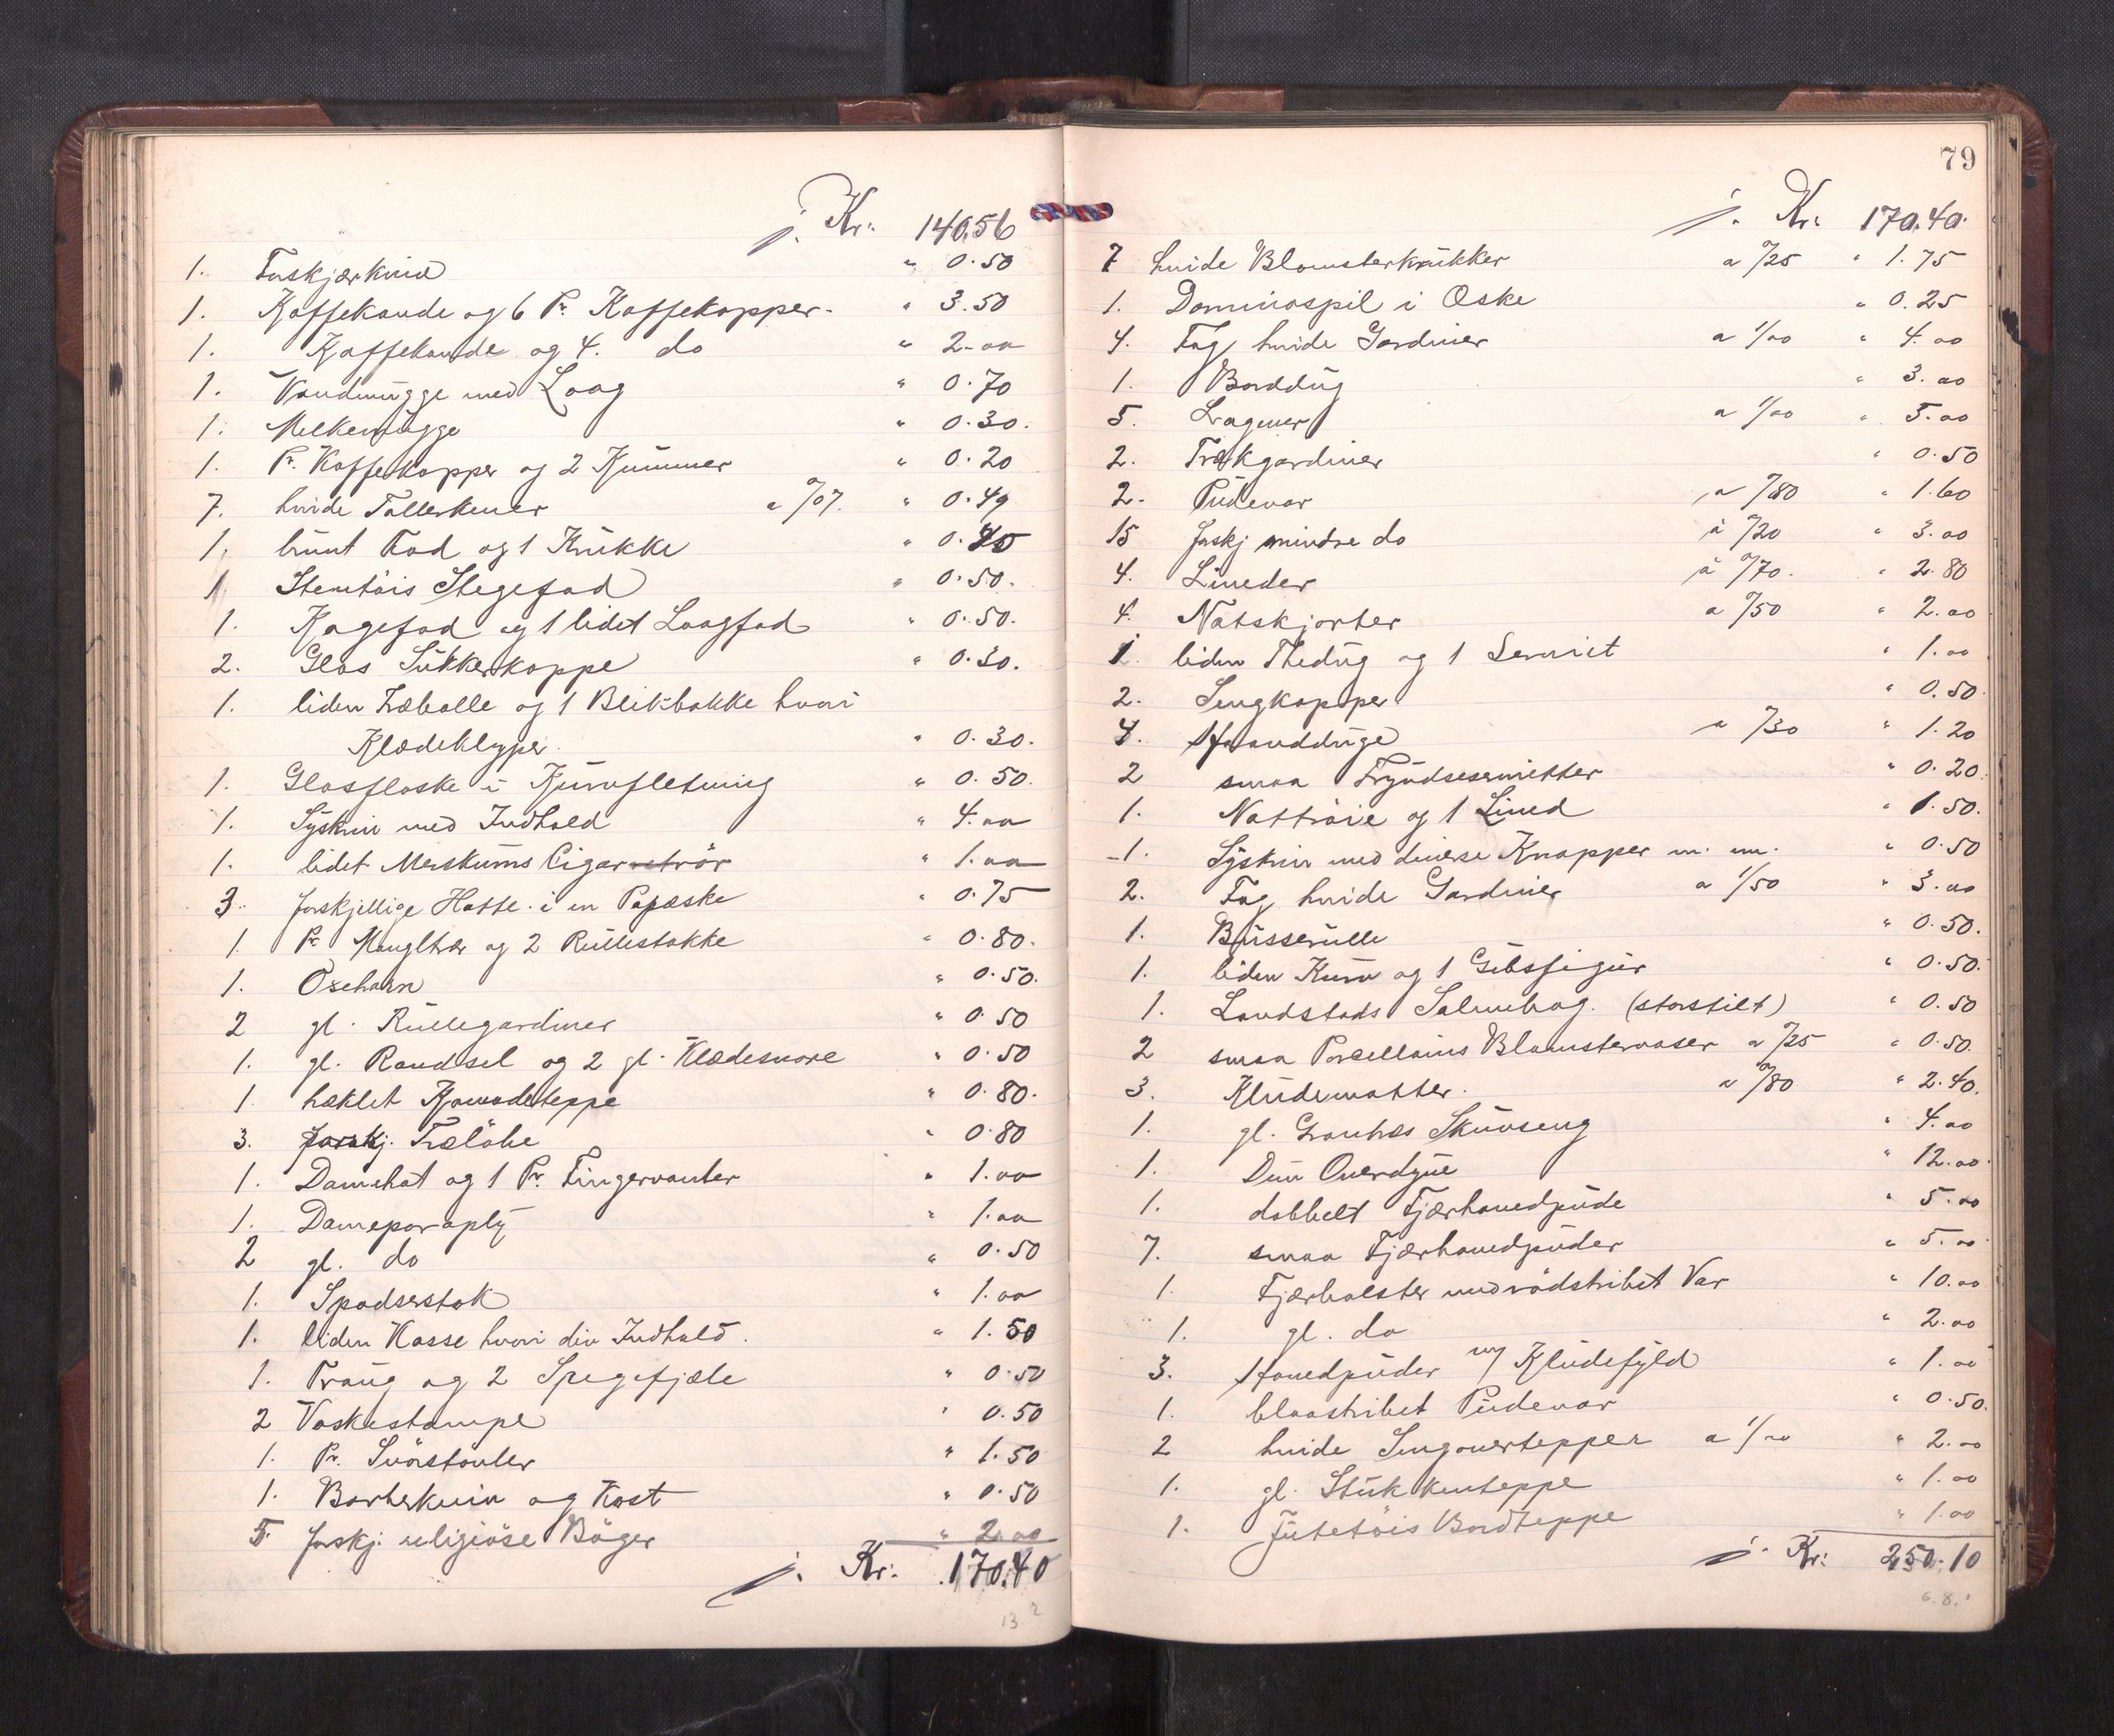 j. Kr: 140.56
1. Forskjærkniv " 0.50
1. Kaffekande og 6 Pr. Kaffekopper. " 3.50
1. Kaffekande og 4. do " 2.00
1. Vandmugge med Laag " 0.70
1. Melkemugge " 0.30.
1. Pr. Kaffekopper og 2 Kummer " 0.20
7. hvide Tallerkener a 0/07. " 0.49
1. brunt Fad og 1 Krukke " 0.45
1 Stentöis Stegefad " 0.50.
1. Kagefad og 1 lidet Laagfad " 0.50.
2. Glas Sukkerkoppe " 0.30.
1. liden Træbolle og 1 Blikbakke hvori
Klædeklyper. " 0.30.
1. Glasflaske i Kurvfletning " 0.50.
1. Syskrin med Indhold " 4.00
1. lidet Merskums Cigarrör " 1.00
3. forskjellige Hatte i en Papæske " 0.75
1 Pr Mangltrær og 2 Rullestokke " 0.80.
1. Oxehorn " 0.50.
2 gl. Rullegardiner " 0.50
1. gl. Randsel og 2 gl. Klædesnore " 0.50
1. heklet Komodeteppe " 0.80.
3. forskj. Træløbe " 0.80
1. Damehat og 1 Pr. Fingervanter " 1.00
1. Dameparaply " 1.00
2 gl. do " 0.50
1. Spadserstok " 1.00
1. liden Kasse hvori div Indhold. " 1.50
1. Traug og 2 Spegefjæle " 0.50
2 Vaskestampe " 0.50
1. Pr. Snörstövler " 1.50
1. Barberkniv og Kost " 0.50
5 forskj. religiöse Böger " 2.00
j. Kr: 170.40
79
j. Kr: 170.40.
7 hvide Blomsterkrukker a 0/25 " 1.75
1. Dominospil i Oske " 0.25
4. Fag hvide Gardiner a 1/00 " 4.00
1. Borddug " 3.00
5. Lagener a 1/00 " 5.00
2. Trækgardiner " 0.50
2. Pudevar a 0/80 " 1.60
15 forskj mindre do á 0/20 " 3.00
4. Lineder á 0/70. " 2.80
4. Natskjorter a 0/50 " 2.00
1. liden Thedug og 1 Serviet " 1.00
2. Sengkapper " 0.50
4. Haandduge a 0/30 " 1.20
2 smaa Fryndseservietter " 0.20.
1. Nattröie og 1 Lined " 1.50.
1. Syskrin med diverse Knapper m. m. " 0.50
2. Fag hvide Gardiner a 1/50 " 3.00
1. Busserulle " 0.50.
1. liden Kurv og 1 Gibsfigur " 0.50.
1. Landstads Salmebog. (storstilt) " 0.50
2 smaa Porcellains Blomstervaser a 0/25 " 0.50.
3. Kludematter. a 0/80 " 2.40.
1. gl. Grantræs Skuvseng " 4.00
1. Dun Overdyne " 12.00.
1. dobbelt Fjærhovedpude " 5.00
7. smaa Fjærhovedpuder " 5.00
1. Fjærbolster med rödstribet Var " 10.00
1. gl. do " 2.00
3. Hovedpuder m/ Kludefyld " 1.00
1. blaastribet Pudevar " 0.50.
2 hvide Sengovertepper a 1/00 " 2.00
1. gl. Stukkenteppe " 1.00
1. Jutetöis Bordteppe " 1.00
j. Kr: 250.10